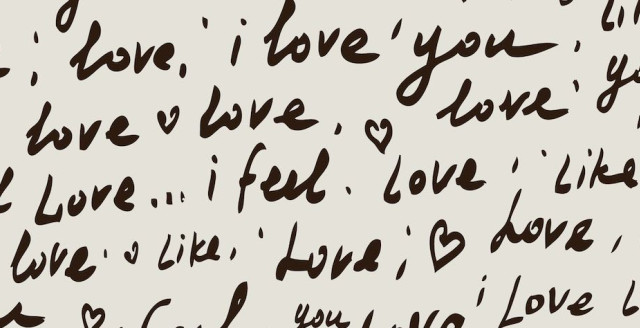 love, i love you.
love love. love
Love... i feel. Love, Like
love Like, Love, Love,
you Love i Love